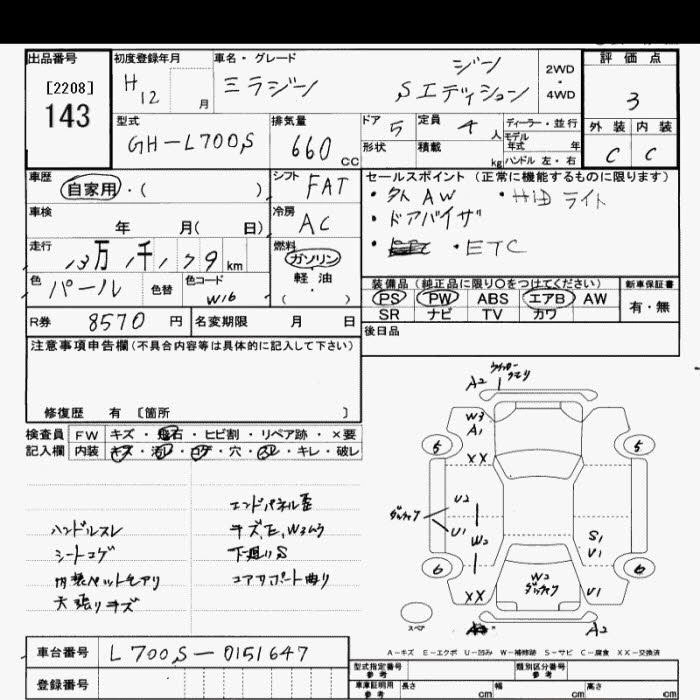 出品番号
[2208]
143
初度登録年月
H12 月
車名・グレード
ミラジーノ
ジーノ
Sエディション
2WD
・
4WD
評価点
3
外装 内装
C C
型式
GH-L700S
排気量
660 CC
ドア 5
形状
定員 4 人
積載 kg
ディーラー・並行
モデル
年式 年
ハンドル 左・右
車歴
自家用・( )
シフト FAT
車検
年 月( 日)
冷房 AC
走行
13万 1千 179 km
燃料
ガソリン
軽・油
( )
色 パール 色替 色コード W16
R券 8570 円 名変期限 月 日
セールスポイント (正常に機能するものに限ります)
・外AW ・HiDライト
・ドアバイザ
・ ・ETC
装備品 (純正品に限り〇をつけてください) 新車保証書
PS PW ABS エアB AW
SR ナビ TV カワ
有・無
後日品
注意事項申告欄(不具合内容等は具体的に記入して下さい)
修復歴 有 [箇所 ]
検査員 FW キズ・飛石・ヒビ割・リペア跡・×要
記入欄 内装 キズ・汚レ・コゲ・穴・スレ・キレ・破レ
ハンドルスレ
シートコゲ
内装ペット毛アリ
天張りキズ
エンドパネル歪
キズ,E,Wあり
下廻りS
コアサポート曲り
A2
W3
A1
XX
5 5
U2
U1
W2
S1
U1
6 6
W2
XX
U1
スペア
A2
A-キズ E-エクボ U-凹み W-補修跡 S-サビ C-腐食 XX-交換済
車台番号 L700S-0151647
登録番号
型式指定番号 類別区分番号
車庫証明用
参考
長さ cm 幅 cm 高さ cm